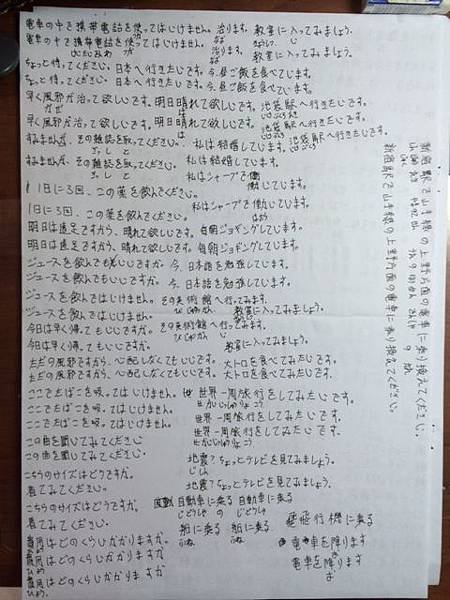 電車の中で携帯電話を使ってはじけません。治ります。教室に入ってみましょう。
電車の中で携帯電話を使ってはじけません。治ります。教室に入ってみましょう。
ちょっと待ってください。日本へ行きたいじです。今、昼ご飯を食べています。
ちょっと待ってください。日本へ行きたいじです。今、昼ご飯を食べています。
早く風邪が治って欲しいです。明日晴れて欲しいです。池袋駅へ行きたいです。
早く風邪が治って欲しいです。明日晴れて欲しいです。池袋駅へ行きたいです。
すみませんが、その雑誌を取ってください。私は結婚しています。
すみませんが、その雑誌を取ってください。私は結婚しています。
1日に3回、この薬を飲んでください。私はシャープで働いています。
1日に3回、この薬を飲んでください。私はシャープで働いています。
明日は遠足ですから、晴れて欲しいです。毎朝ジョギングしています。
明日は遠足ですから、晴れて欲しいです。毎朝ジョギングしています。
ジュースを飲んでもいいですか。今、日本語を勉強しています。
ジュースを飲んでもいいですか。今、日本語を勉強しています。
ジュースを飲んではじけません。その美術館へ行ってみます。
ジュースを飲んではじけません。教室に入ってみましょう。
今日は早く帰ってもいいです。その美術館へ行ってみます。
今日は早く帰ってもいいです。教室に入ってみましょう。
ただの風邪ですから、心配しなくてもいいです。大トロを食べてみたいです。
ただの風邪ですから、心配しなくてもいいです。大トロを食べてみたいです。
ここでたばこを吸ってはじけません。世界一周旅行をしてみたいです。
ここでたばこを吸ってはじけません。世界一周旅行をしてみたいです。
この曲を聞いてみてください。世界一周旅行をしてみたいです。
この曲を聞いてみてください。
こちらのサイズはどうですか。地震?ちょっとテレビを見てみましょう。
着てみてください。
こちらのサイズはどうですか。地震?ちょっとテレビを見てみましょう。
着てみてください。
自動車に乗る 自動車に乗る
船に乗る 船に乗る
飛行機に乗る
電車を降ります
電車を降ります
費用はどのくらいかかりますか。
費用はどのくらいかかりますか。
費用はどのくらいかかりますか
新宿駅で山手線の上野方面の電車に乗り換えてください。
新宿駅で山手線の上野方面の電車に乗り換えてください。